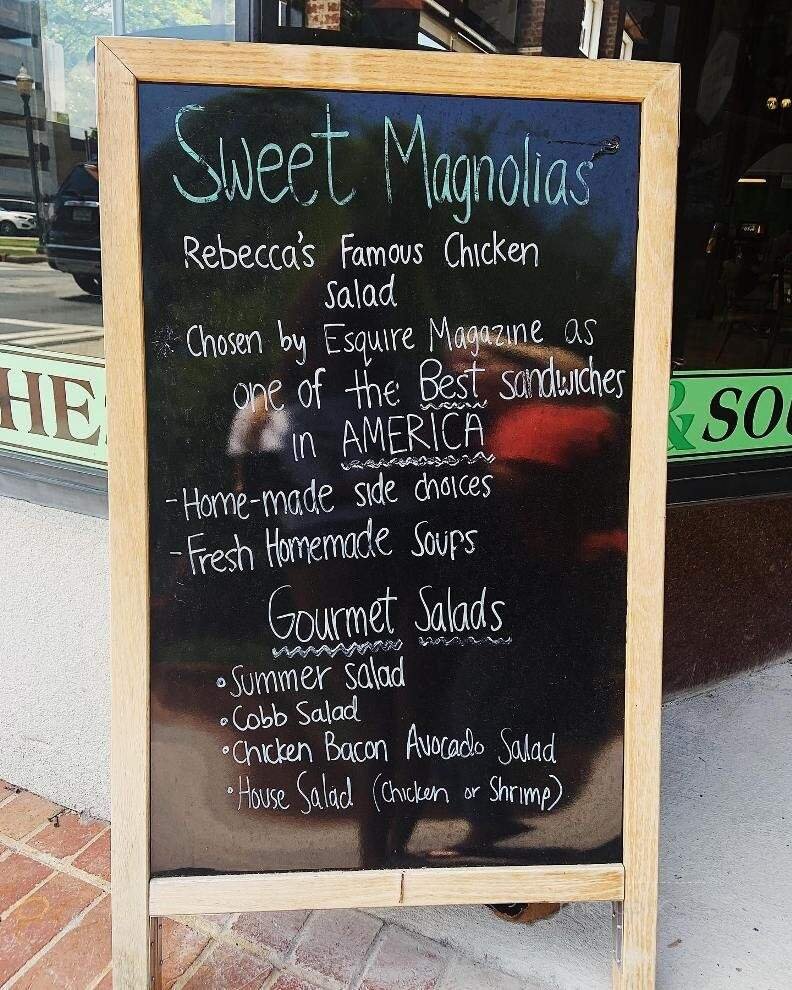 Sweet Magnolias
Rebecca's Famous Chicken
Salad
* Chosen by Esquire Magazine as
one of the Best sandwiches
in AMERICA
- Home-made side choices
- Fresh Homemade Soups
Gourmet Salads
• Summer Salad
• Cobb Salad
• Chicken Bacon Avocado Salad
• House Salad (Chicken or Shrimp)
HE
& SOU